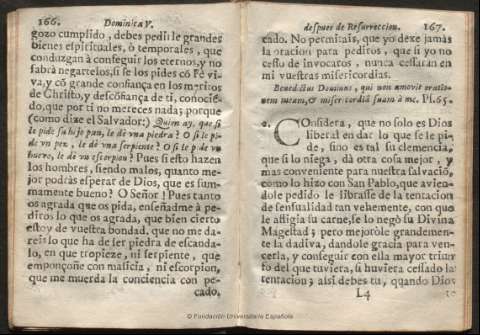 166.
Dominica V.
gozo cumplido, debes pedirle grandes
bienes espirituales, ò temporales, que
conduzgan à conseguir los eternos, y no
sabrà negartelos, si se los pides cõ Fè vi-
va, y cõ grande confiança en los meritos
de Christo, y descõfiança de ti, conociẽ-
do, que por ti no mereces nada; porque
(como dize el Salvador:) Quien ay, que si
le pide su hijo pan, le dè vna piedra? O si le pi-
de vn pez, le dè vna serpiente? O si le pide vn
huevo, le dè vn escorpion? Pues si esto hazen
los hombres, siendo malos, quanto me-
jor podràs esperar de Dios, que es sum-
mamente bueno? O Señor! Pues tanto
os agrada que os pida, enseñadme à pe-
diros lo que os agrada, que bien cierto
estoy de vuestra bondad, que no me da-
reis lo que ha de ser piedra de escanda-
lo, en que tropieze, ni serpiente, que
emponçoñe con malicia, ni escorpion,
que me muerda la conciencia con pe-
cado,
despues de Resurreccion.
167.
cado. No permitais, que yo dexe jamàs
la oracion para pediros, que si yo no
cesso de invocaros, nunca cessaràn en
mi vuestras misericordias.
Benedictus Dominus, qui non amovit oratio-
nem meam, & misericordiã suam à me. Ps. 65.
2. Considera, que no solo es Dios
liberal en dar lo que se le pi-
de, sino es tal su clemencia,
que si lo niega, dà otra cosa mejor, y
mas conveniente para nuestra salvaciõ,
como lo hizo con San Pablo, que avien-
dole pedido le librasse de la tentacion
de sensualidad tan vehemente, con que
le afligia su carne, se lo negò su Divina
Magestad; pero mejoròle grandemen-
te la dadiva, dandole gracia para ven-
cerla, y conseguir con ella mayor triun-
fo del que tuviera, si huviera cessado la
tentacion; assi debes tu, quando Dios
L4
© Fundación Universitaria Española